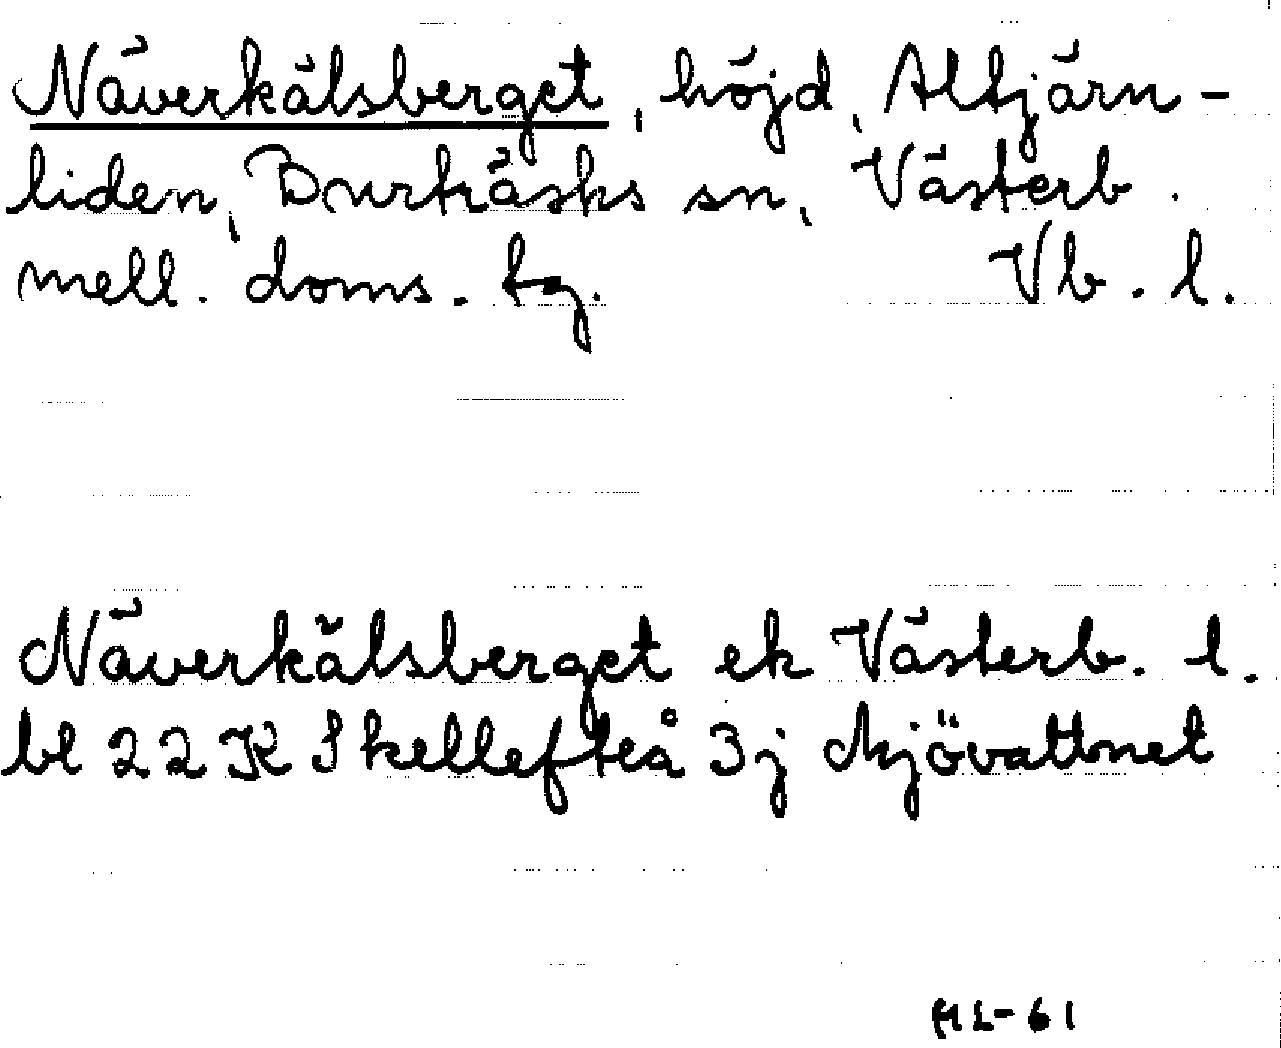 Näverkälsberget, höjd, Altjärn-
liden, Burträsks sn, Västerb.
mell. doms. tg. Vb. l.
Näverkälsberget ek Västerb. l.
bl 22K Skellefteå 3j Mjövattnet
ML-61